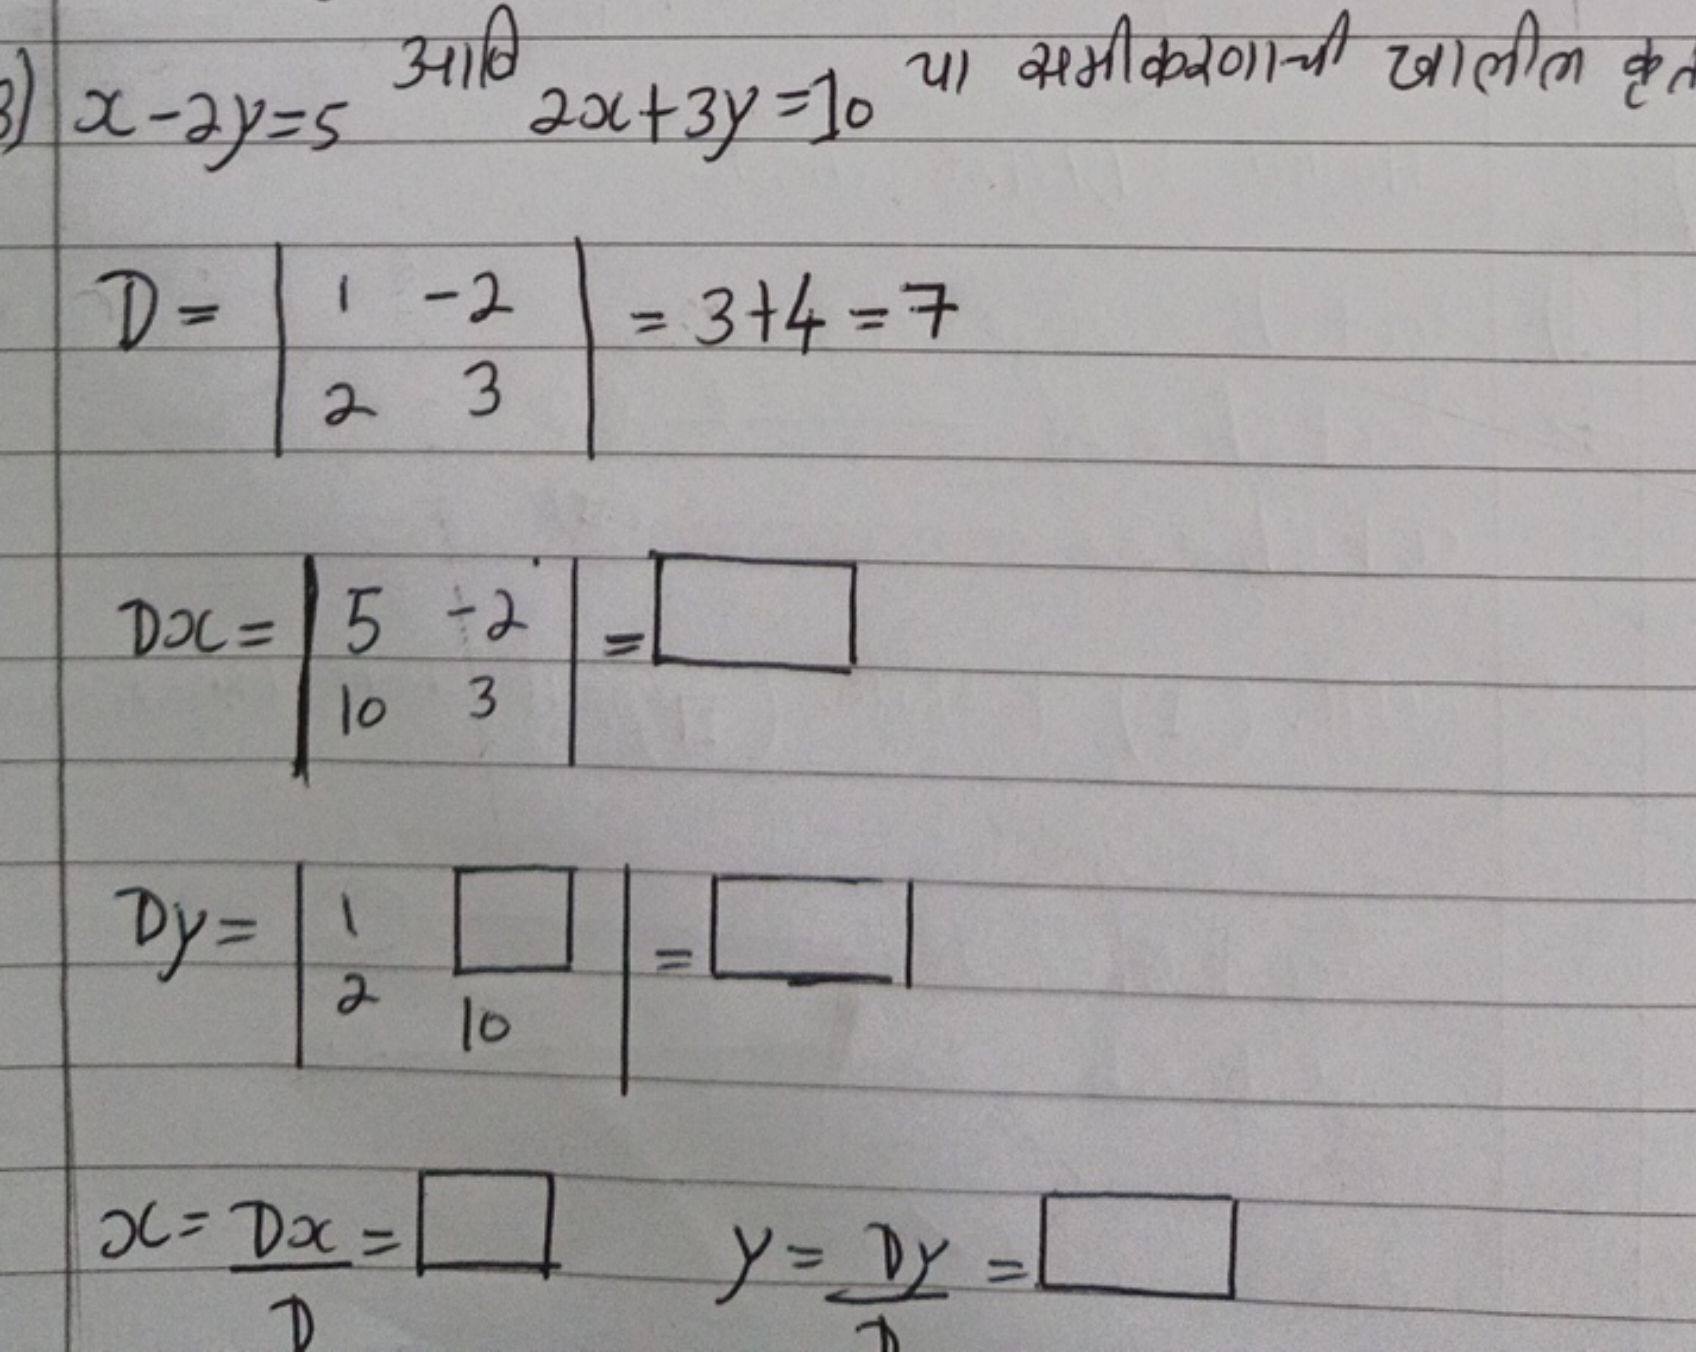 3) x-2y=5 आणि 2x+3y=10 या समीकरणाची खालील
D = | 1 -2 | = 3+4 = 7
| 2 3 |
Dx = | 5 -2 | = □
| 10 3 |
Dy = | 1 □ | = □
| 2 10 |
x = Dx/D = □ y = Dy/D = □